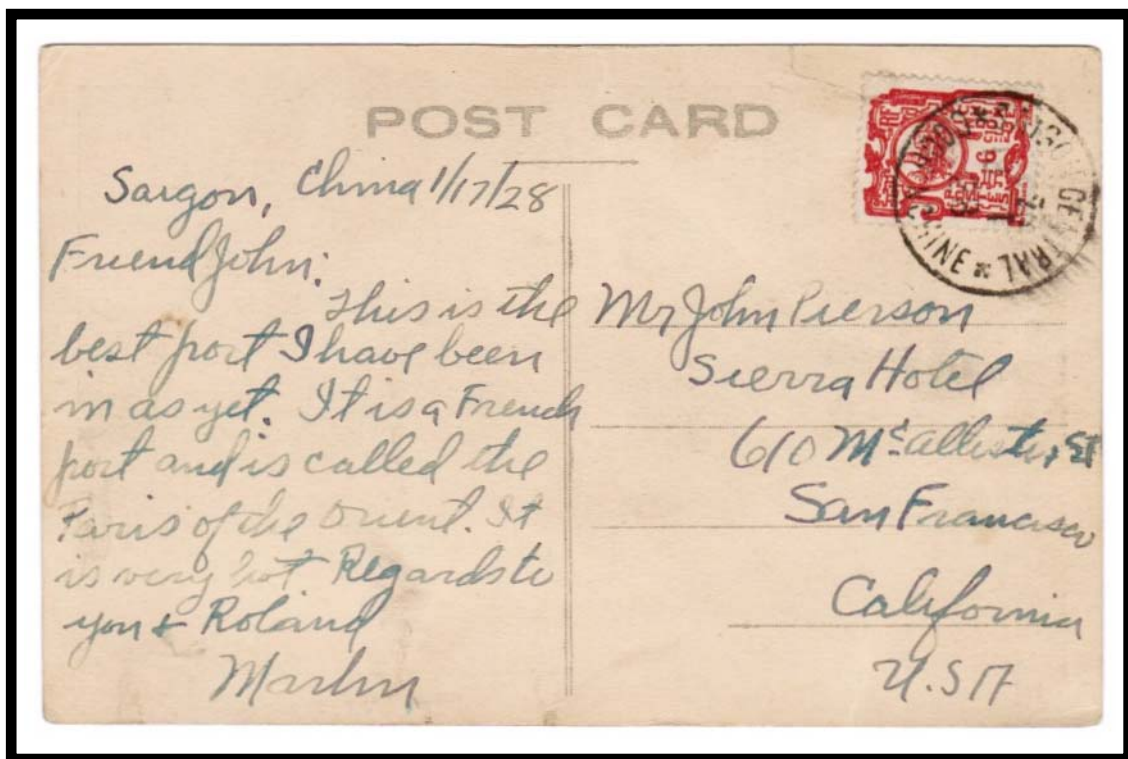 POST CARD
Saigon, China 1/17/28
Friend John:
This is the
best port I have been
in as yet. It is a French
port and is called the
Paris of the Orient. It
is very hot Regards to
you & Roland
Mr John Pierson
Sierra Hotel
610 McAllister St
San Francisco
California
U.S.A
CENTRAL